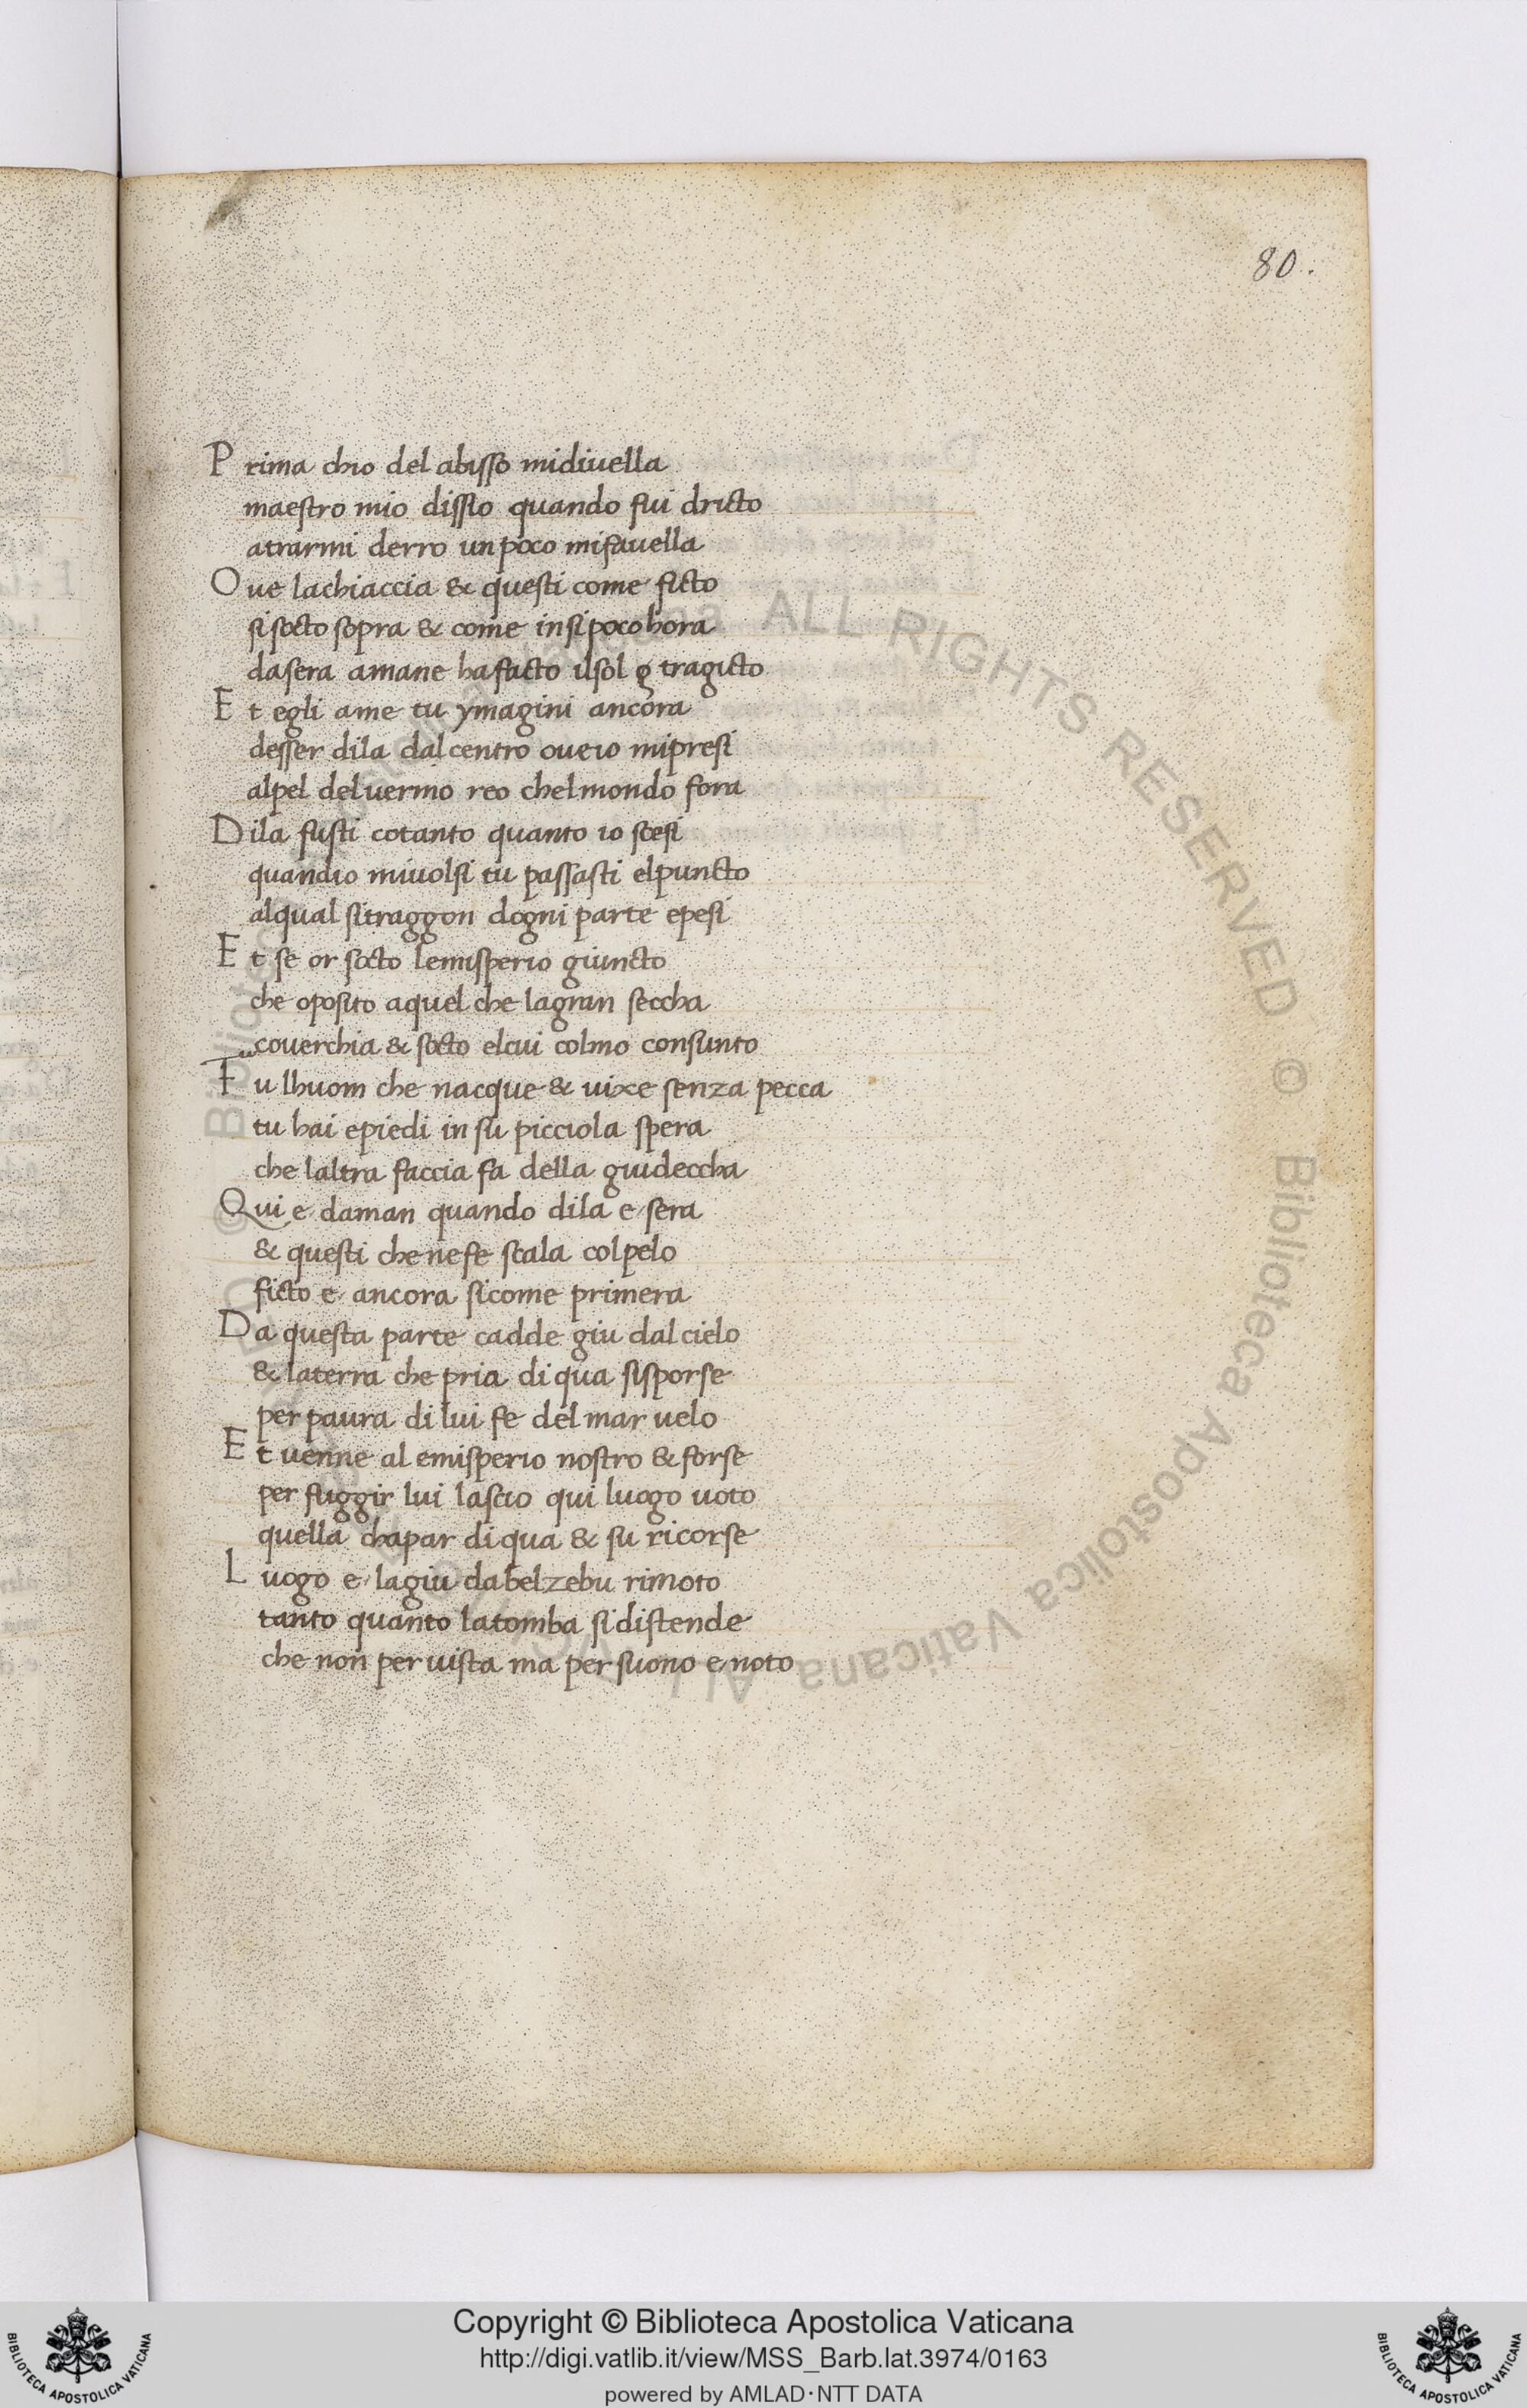 80.
Prima chio del abisso midiuella
maestro mio dissio quando fui dricto
atrarmi derro un poco mifauella
Oue lachiaccia & questi come ficto
si socto sopra & come insi poco hora
dasera amane ha facto ilsol ꝑ tragicto
Et egli ame tu ymagini ancora
desser dila dal centro oueio mipresi
alpel deluermo reo chelmondo fora
Dila fusti cotanto quanto io scesi
quandio miuolsi tu passasti elpuncto
alqual sitraggon dogni parte epesi
Et se or socto lemisperio giuncto
che oposito aquel che lagran seccha
couerchia & socto elcui colmo consunto
Fu lhuom che nacque & uixe senza pecca
tu hai epiedi in su picciola spera
che laltra faccia fa della guideccha
Qui e daman quando dila e sera
& questi che nefe scala colpelo
ficto e ancora sicome primera
Da questa parte cadde giu dal cielo
& laterra che pria di qua sisporse
per paura di lui fe del mar uelo
Et uenne al emisperio nostro & forse
per fuggir lui lascio qui luogo uoto
quella chapar di qua & su ricorse
Luogo e lagiu dabelzebu rimoto
tanto quanto latomba si distende
che non per uista ma per suono e noto
© Biblioteca Apostolica Vaticana ALL RIGHTS RESERVED © Biblioteca Apostolica Vaticana ALL RIGHTS RESERVED
Copyright © Biblioteca Apostolica Vaticana
http://digi.vatlib.it/view/MSS_Barb.lat.3974/0163
powered by AMLAD·NTT DATA
BIBLIOTECA APOSTOLICA VATICANA
BIBLIOTECA APOSTOLICA VATICANA